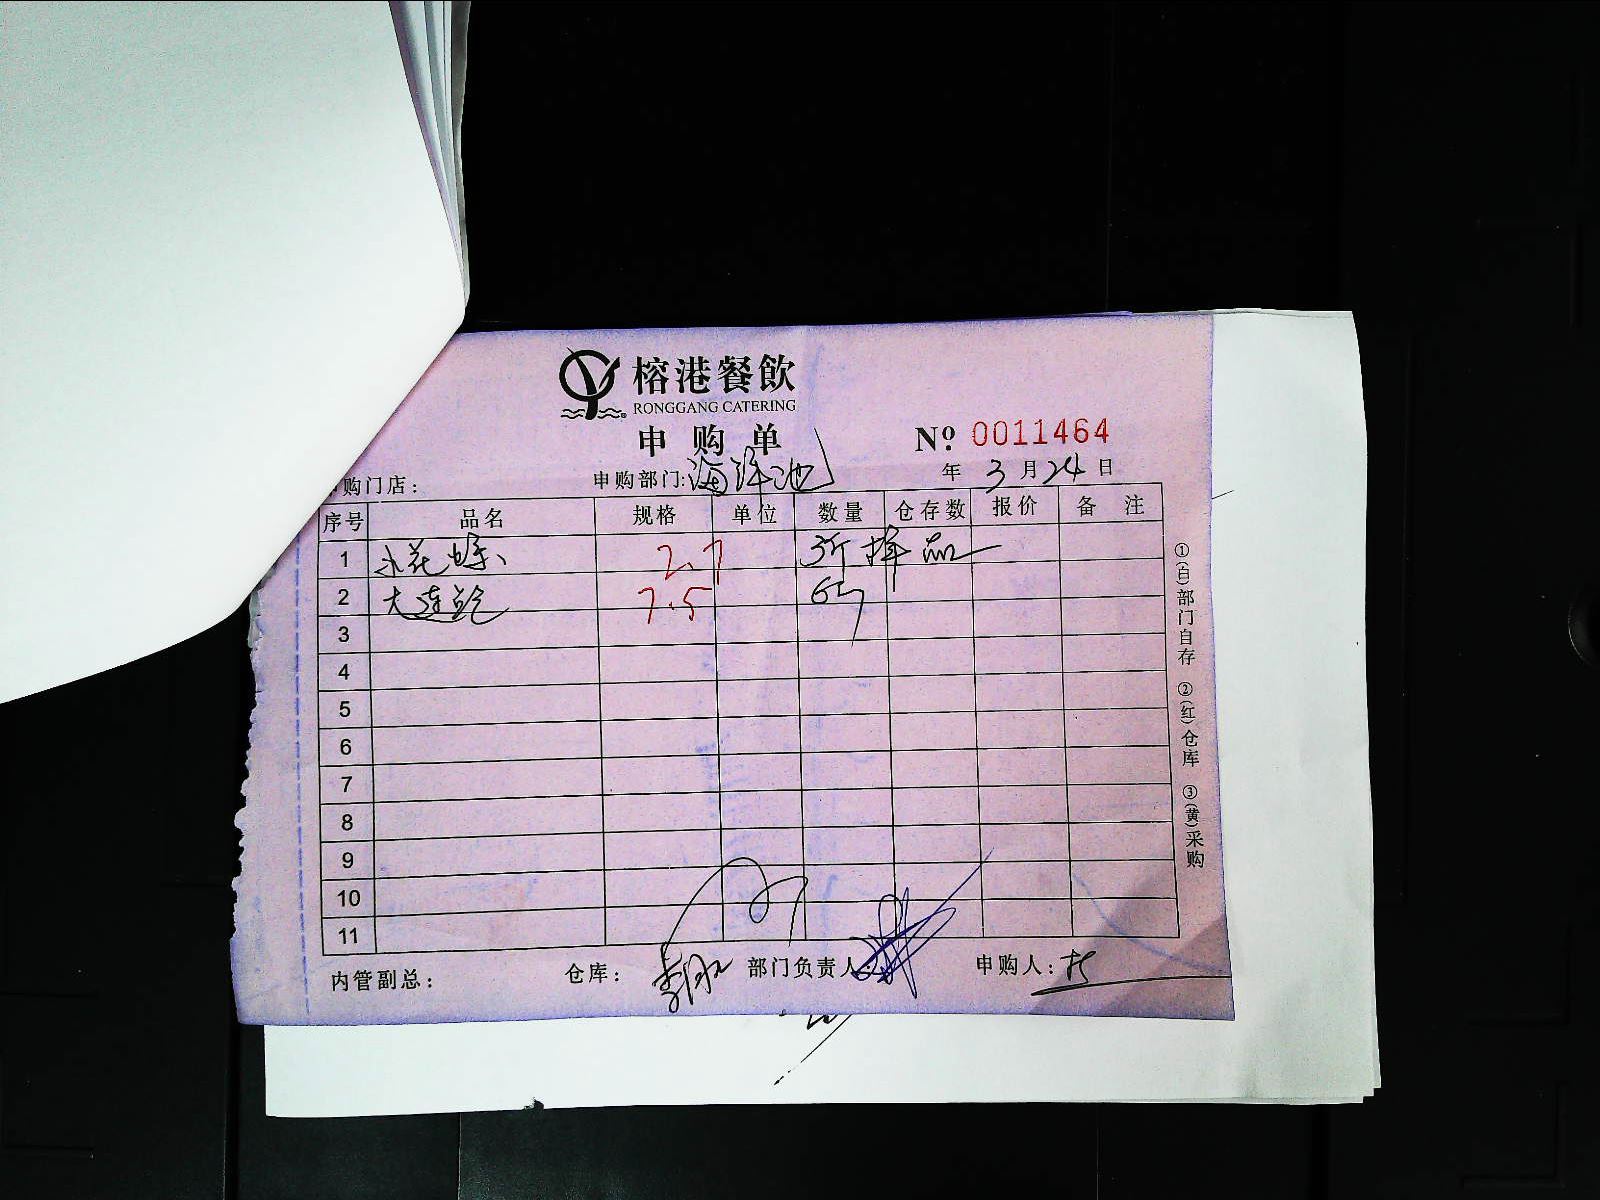 榕港餐飲
RONGGANG CATERING
申购单
No. 0011464
购门店： 申购部门：海洋池 年 3 月 24 日
序号 品名 规格 单位 数量 仓存数 报价 备 注
1 花螺 2.7 3斤 样品
2 大连鲍 7.5 6斤
3
4
5
6
7
8
9
10
11
内管副总： 仓库： 部门负责人： 申购人：
①(白)部门自存 ②(红)仓库 ③(黄)采购